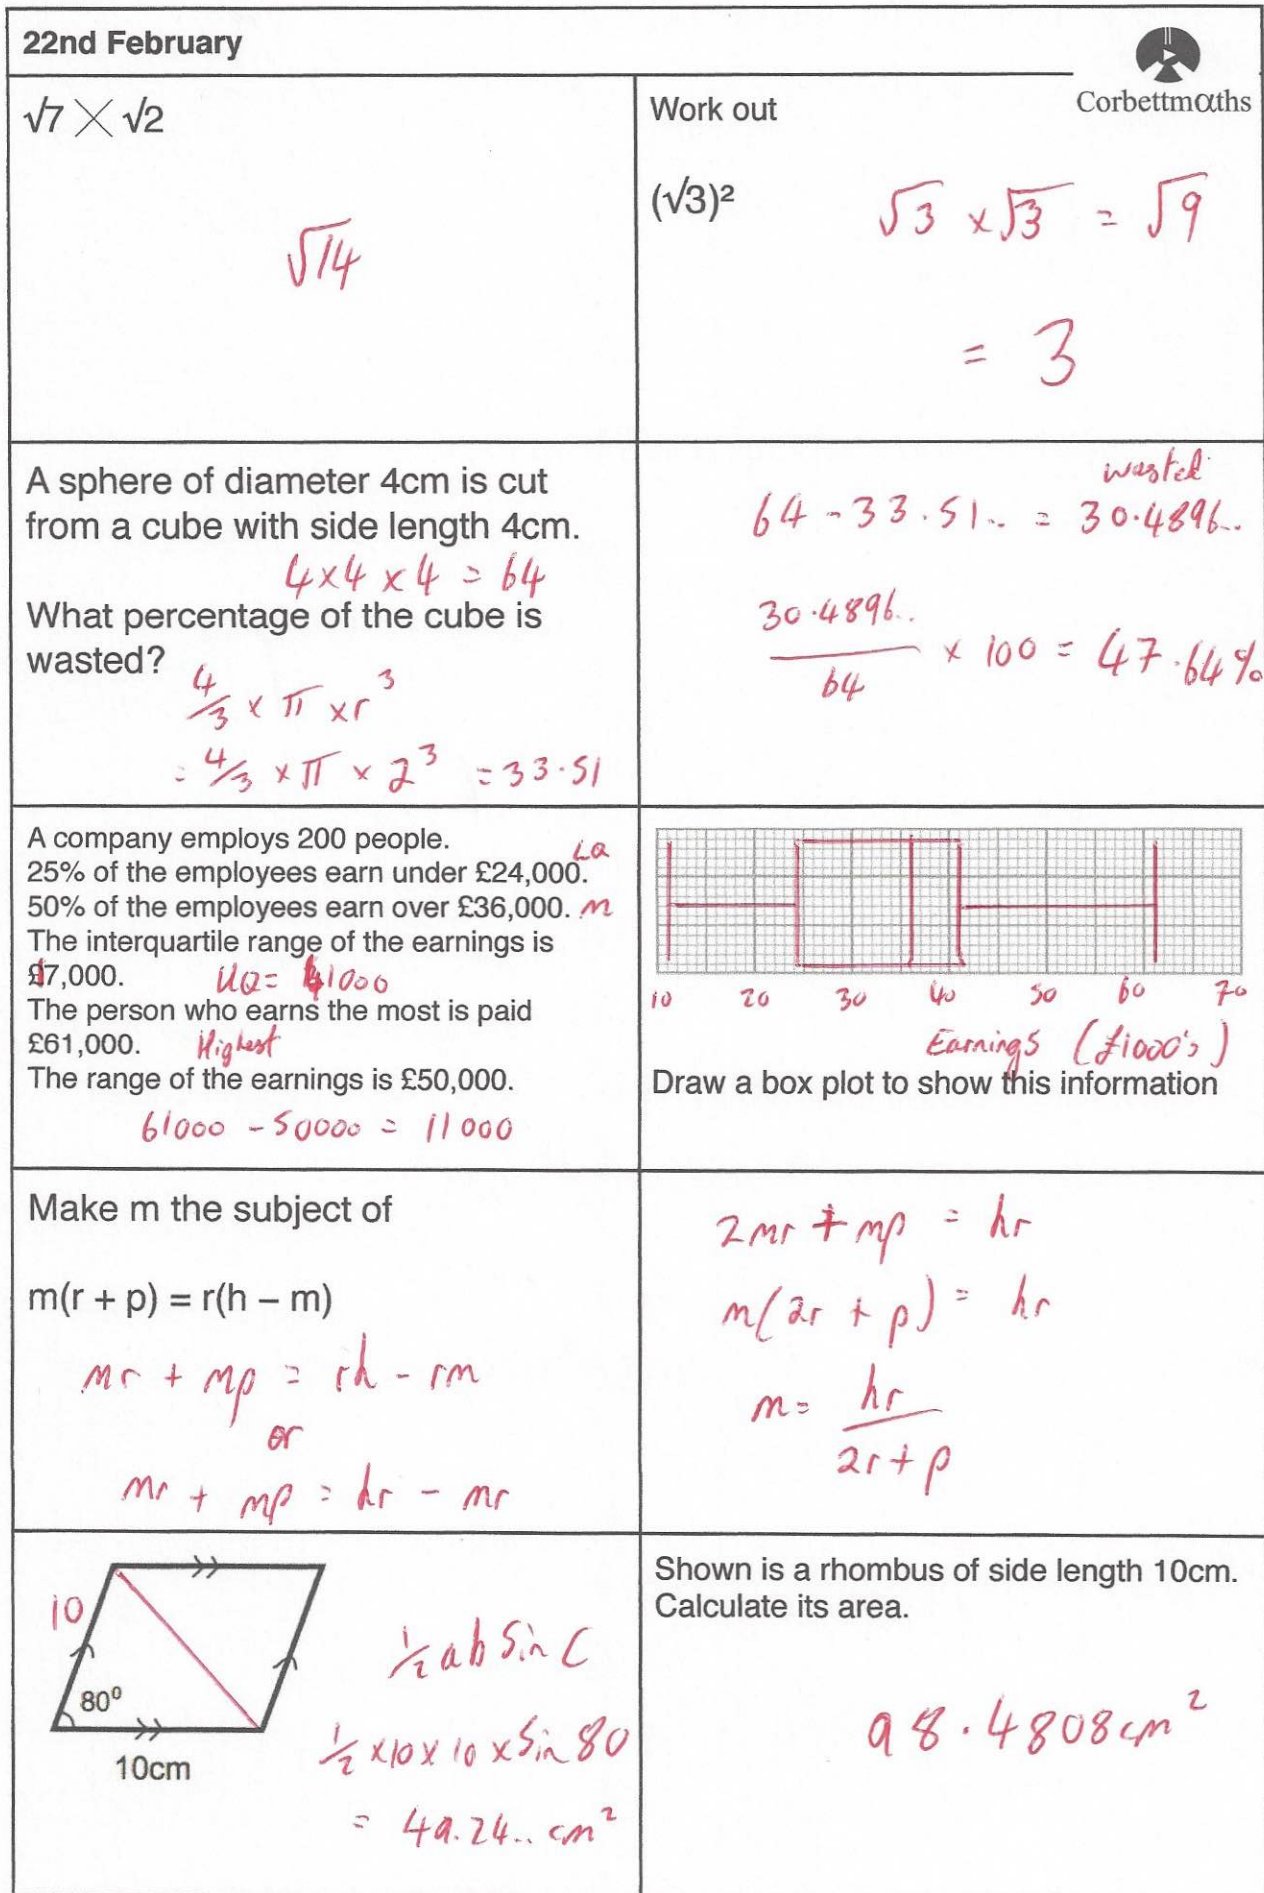 22nd February
Corbettmαths
√7 × √2
√14
Work out
(√3)²
√3 × √3 = √9
= 3
A sphere of diameter 4cm is cut
from a cube with side length 4cm.
4 × 4 × 4 = 64
What percentage of the cube is
wasted?
4/3 × π × r³
= 4/3 × π × 2³ = 33.51
wasted
64 - 33.51.. = 30.4896..
30.4896..
/64 × 100 = 47.64%
A company employs 200 people.
25% of the employees earn under £24,000. LQ
50% of the employees earn over £36,000. M
The interquartile range of the earnings is
£17,000. UQ = 41000
The person who earns the most is paid
£61,000. Highest
The range of the earnings is £50,000.
61000 - 50000 = 11000
10 20 30 40 50 60 70
Earnings (£1000's)
Draw a box plot to show this information
Make m the subject of
m(r + p) = r(h – m)
mr + mp = rh - rm
or
mr + mp = hr - mr
2mr + mp = hr
m(2r + p) = hr
m = hr
/2r + p
10
80⁰
10cm
½ ab Sin C
½ × 10 × 10 × Sin 80
= 49.24.. cm²
Shown is a rhombus of side length 10cm.
Calculate its area.
98.4808cm²